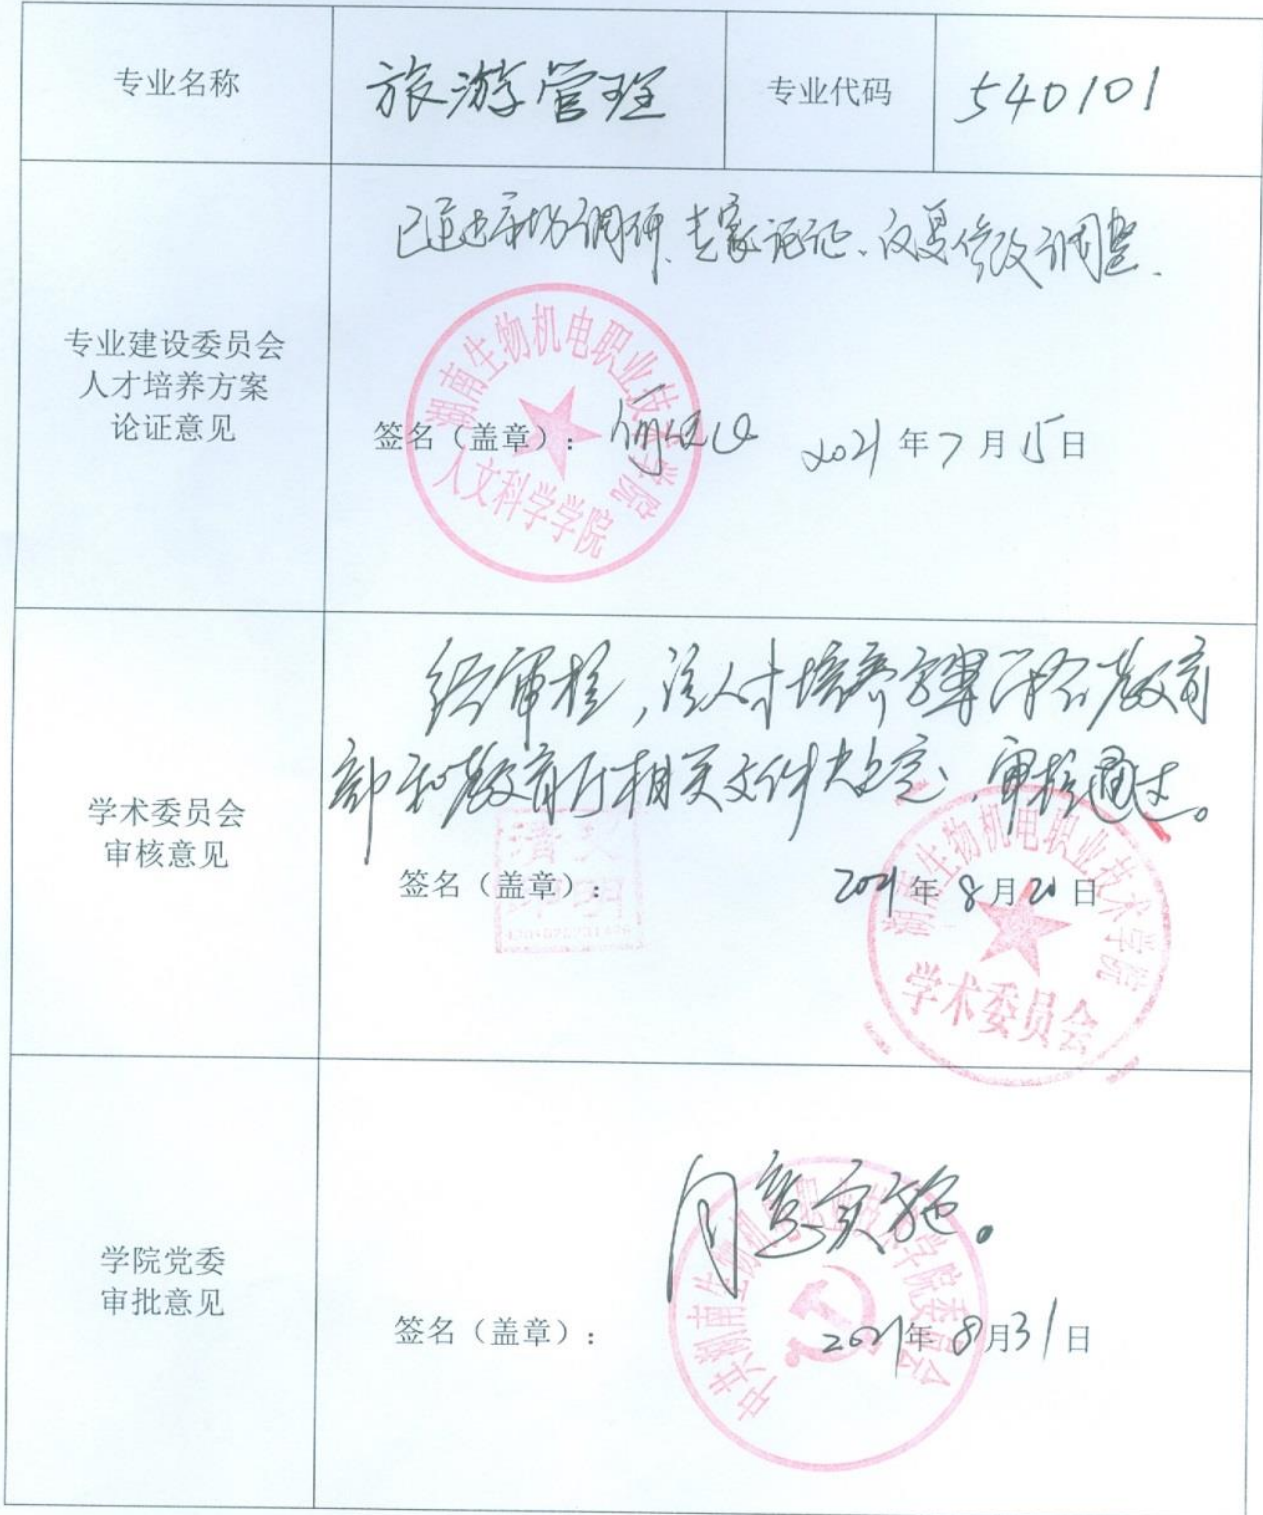 专业名称
旅游管理
专业代码
540101
专业建设委员会
人才培养方案
论证意见
已通过市场调研、专家论证、反复修改调整.
湖南生物机电职业技术学院
人文科学学院
签名（盖章）：
2021年7月15日
学术委员会
审核意见
经审核，该人才培养方案符合教育
部和教育厅相关文件规定，审核通过。
签名（盖章）：
2021年8月20日
湖南生物机电职业技术学院
学术委员会
学院党委
审批意见
同意实施。
签名（盖章）：
2021年8月31日
中共湖南生物机电职业技术学院委员会